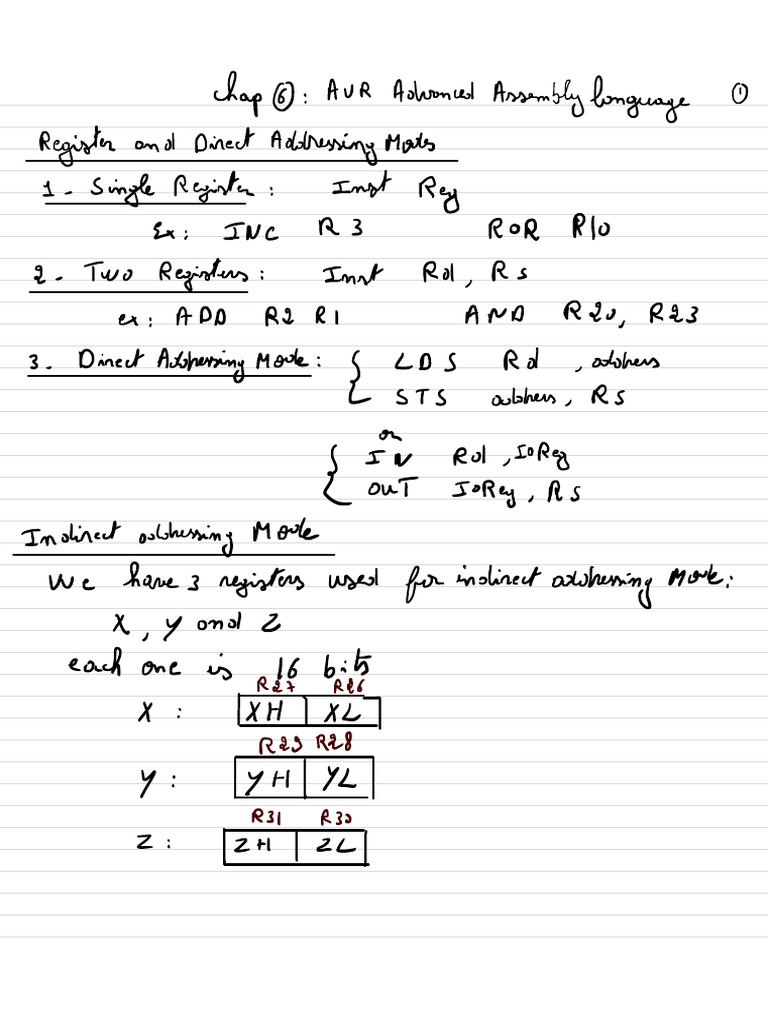 Chap ⑥: AVR Advanced Assembly language ①
Register and Direct Addressing Modes
1 - Single Register : Inst Reg
Ex: INC R3 ROR R10
2 - Two Registers : Inst Rd, Rs
ex: ADD R2 R1 AND R20, R23
3. Direct Addressing Mode : { LDS Rd , address
STS address, Rs
or
{ IN Rd , IoReg
OUT IoReg, Rs
Indirect addressing Mode
We have 3 registers used for indirect addressing Mode:
X, Y and Z
each one is 16 bits
R27 R26
X : XH XL
R29 R28
Y : YH YL
R31 R30
Z : ZH ZL